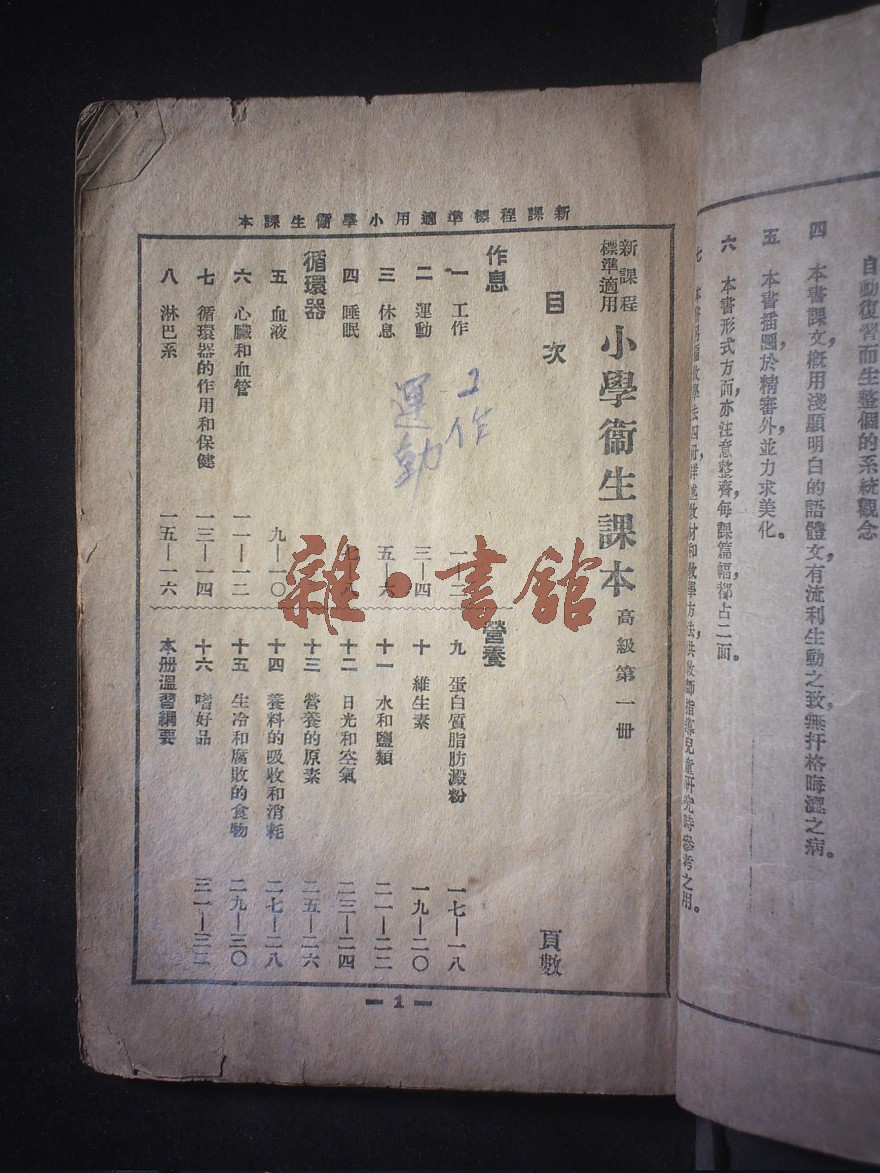 自動復習而生整個的系統觀念
四　本書課文，概用淺顯明白的語體文，有流利生動之致，無扞格晦澀之病。
五　本書插圖，於精審外，並力求美化。
六　本書形式方面，亦注意整齊，每課篇幅，都占二面。
教材和教學方法，供教師指導兒童研究時參考之用。
新課程標準適用小學衞生課本
新課程標準適用　小學衞生課本　高級第一冊
目次　頁數
作息
一　工作　一—二
二　運動　三—四
三　休息　五—六
四　睡眠　七—八
循環器
五　血液　九—一〇
六　心臟和血管　一一—一二
七　循環器的作用和保健　一三—一四
八　淋巴系　一五—一六
營養
九　蛋白質脂肪澱粉　一七—一八
十　維生素　一九—二〇
十一　水和鹽類　二一—二二
十二　日光和空氣　二三—二四
十三　營養的原素　二五—二六
十四　養料的吸收和消耗　二七—二八
十五　生冷和腐敗的食物　二九—三〇
十六　嗜好品　三一—三二
本册溫習綱要
工作
運動
雜·書館
— 1 —